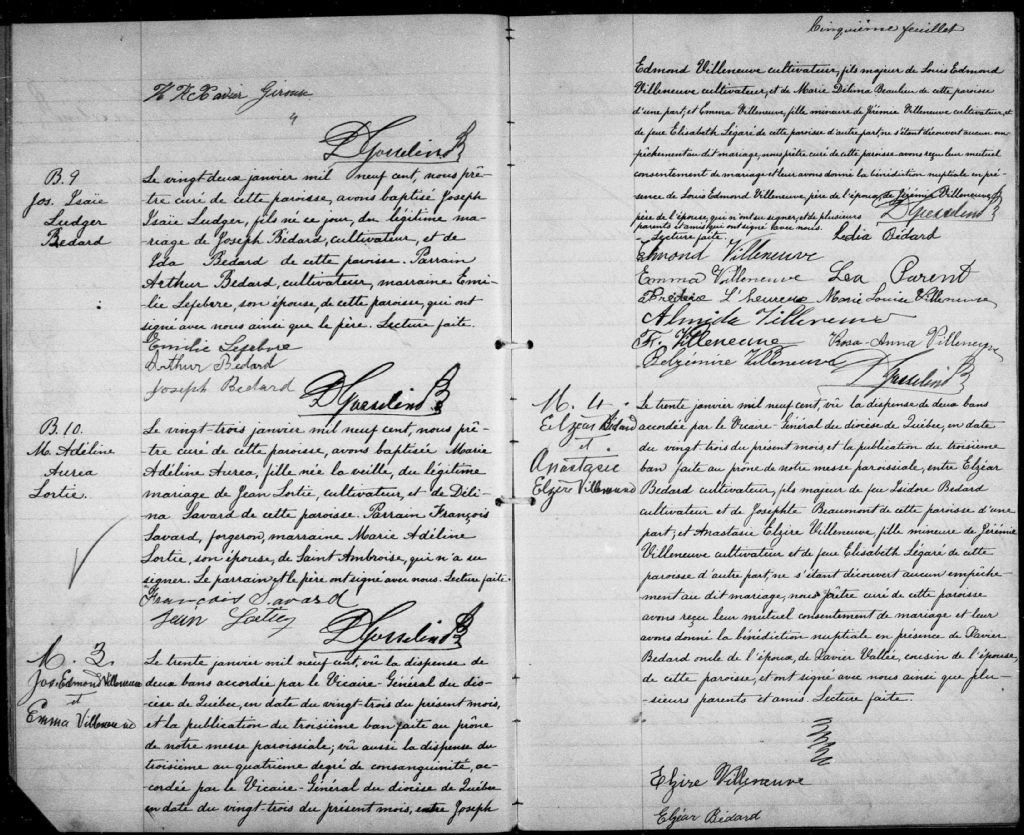 F. X. Xavier Giroux
D Gosselin Ptr
B. 9
Jos. Isaïe
Ludger
Bédard
Le vingt deux janvier mil neuf cent, nous prê-
tre curé de cette paroisse, avons baptisé Joseph
Isaïe Ludger, fils né ce jour, du légitime ma-
riage de Joseph Bédard, cultivateur, et de
Ida Bédard de cette paroisse. Parrain
Arthur Bedard, cultivateur, marraine Emi-
lie Lefebvre, son épouse, de cette paroisse, qui ont
signé avec nous ainsi que le père. Lecture faite.
Emilie Lefebvre
Arthur Bédard
Joseph Bedard
D Gosselin Ptr
B. 10.
M. Adéline
Aurea
Lortie.
Le vingt-trois janvier mil neuf cent, nous prê-
tre curé de cette paroisse, avons baptisée Marie
Adéline Aurea, fille née la veille, du légitime
mariage de Jean Lortie, cultivateur, et de Déli-
na Savard de cette paroisse. Parrain François
Savard, forgeron, marraine Marie Adéline
Lortie, son épouse, de Saint Ambroise, qui n'a su
signer. Le parrain et le père ont signé avec nous. Lecture faite.
François Savard
Jean Lortie
D Gosselin Ptr
M. 3.
Jos. Edmond Villeneuve
et
Emma Villeneuve
Le trente janvier mil neuf cent, vû la dispense de
deux bans accordée par le Vicaire-Général du dio-
cèse de Québec, en date du vingt-trois du présent mois,
et la publication du troisième ban faite au prône
de notre messe paroissiale; vû aussi la dispense du
troisième au quatrième degré de consanguinité, ac-
cordée par le Vicaire-Général du diocèse de Québec
en date du vingt-trois du présent mois, entre Joseph
Cinquième feuillet
Edmond Villeneuve cultivateur, fils majeur de Louis Edmond
Villeneuve cultivateur, et de Marie Délima Beaulieu de cette paroisse
d'une part, et Emma Villeneuve, fille mineure de Jérémie Villeneuve cultivateur, et
de feue Elisabeth Légaré de cette paroisse d'autre part, ne s'étant découvert aucun em-
pêchement au dit mariage, nous prêtre curé de cette paroisse avons reçu leur mutuel
consentement de mariage et leur avons donné la bénédiction nuptiale en pré-
sence de Louis Edmond Villeneuve, père de l'époux, de Jérémie Villeneuve,
père de l'épouse, qui n'ont su signer, et de plusieurs
parents et amis qui ont signé avec nous.
Lecture faite.
D Gosselin Ptr
Ledia Bédard
Edmond Villeneuve
Emma Villeneuve Lea Parent
Frédéric L'heureux Marie Louise Villeneuve
Almida Villeneuve
Fr. Villeneuve Rosa-Anna Villeneuve
Polzémire Villeneuve
D Gosselin Ptr
M. 4.
Elzéar Bédard
et
Anastasie
Elzire Villeneuve
Le trente janvier mil neuf cent, vû la dispense de deux bans
accordée par le Vicaire-Général du diocèse de Québec, en date
du vingt-trois du présent mois, et la publication du troisième
ban faite au prône de notre messe paroissiale, entre Elzéar
Bedard cultivateur, fils majeur de feu Isidore Bedard
cultivateur et de Josephte Beaumont de cette paroisse d'une
part, et Anastasie Elzire Villeneuve, fille mineure de Jérémie
Villeneuve cultivateur et de feue Elisabeth Légaré de cette
paroisse d'autre part, ne s'étant découvert aucun empêche-
ment au dit mariage, nous prêtre curé de cette paroisse
avons reçu leur mutuel consentement de mariage et leur
avons donné la bénédiction nuptiale en présence de Xavier
Bedard oncle de l'époux, de Xavier Vallée, cousin de l'épouse,
de cette paroisse, et ont signé avec nous ainsi que plu-
sieurs parents et amis. Lecture faite.
Elzire Villeneuve
Elzéar Bédard